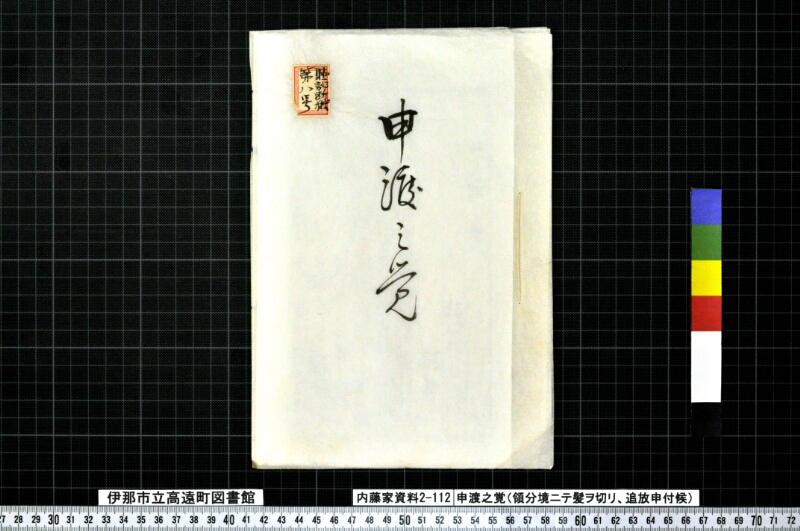 第八号
申渡之覚
伊那市立高遠町図書館
内藤家資料2-112
申渡之覚(領分境ニテ髪ヲ切リ、追放申付候)
27 28 29 30 31 32 33 34 35 36 37 38 39 40 41 42 43 44 45 46 47 48 49 50 51 52 53 54 55 56 57 58 59 60 61 62 63 64 65 66 67 68 69 70 71 72